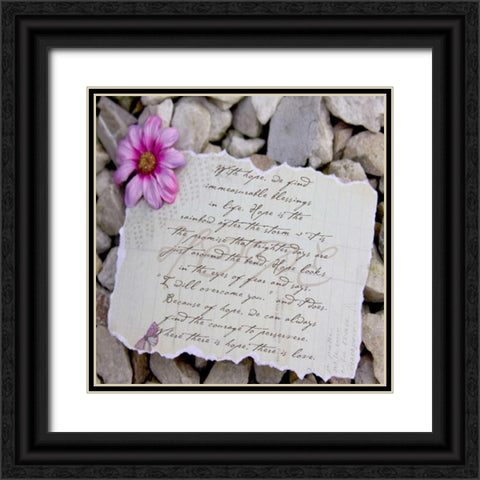 With hope, we find
immeasurable blessings
in life. Hope is the
rainbow after the storm. It is
the promise that brighter days are
just around the bend. Hope looks
in the eyes of fear and says,
"I will overcome you," and it does.
Because of hope, we can always
find the courage to persevere.
Where there is hope, there is love.
hope